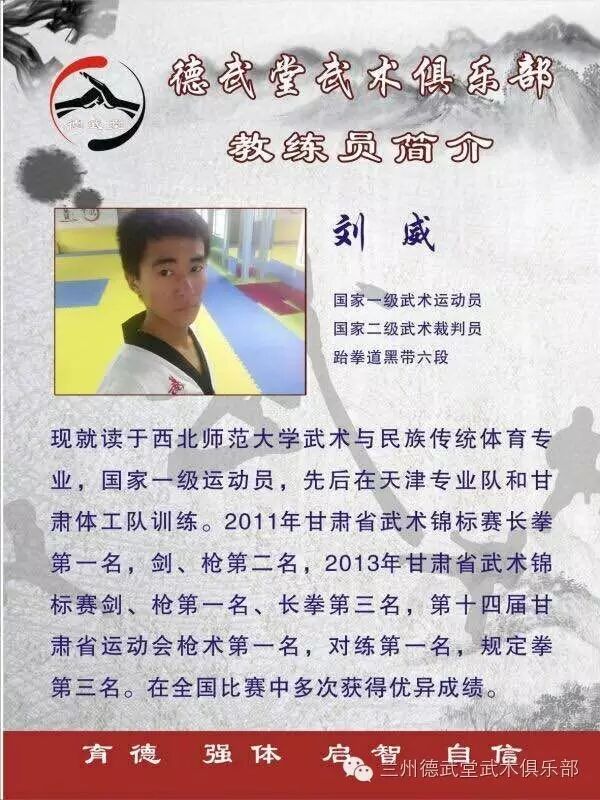 德武堂
德武堂武术俱乐部
教练员简介
刘威
国家一级武术运动员
国家二级武术裁判员
跆拳道黑带六段
现就读于西北师范大学武术与民族传统体育专
业，国家一级运动员，先后在天津专业队和甘
肃体工队训练。2011年甘肃省武术锦标赛长拳
第一名，剑、枪第二名，2013年甘肃省武术锦
标赛剑、枪第一名、长拳第三名，第十四届甘
肃省运动会枪术第一名，对练第一名，规定拳
第三名。在全国比赛中多次获得优异成绩。
育德 强体 启智 自信
兰州德武堂武术俱乐部